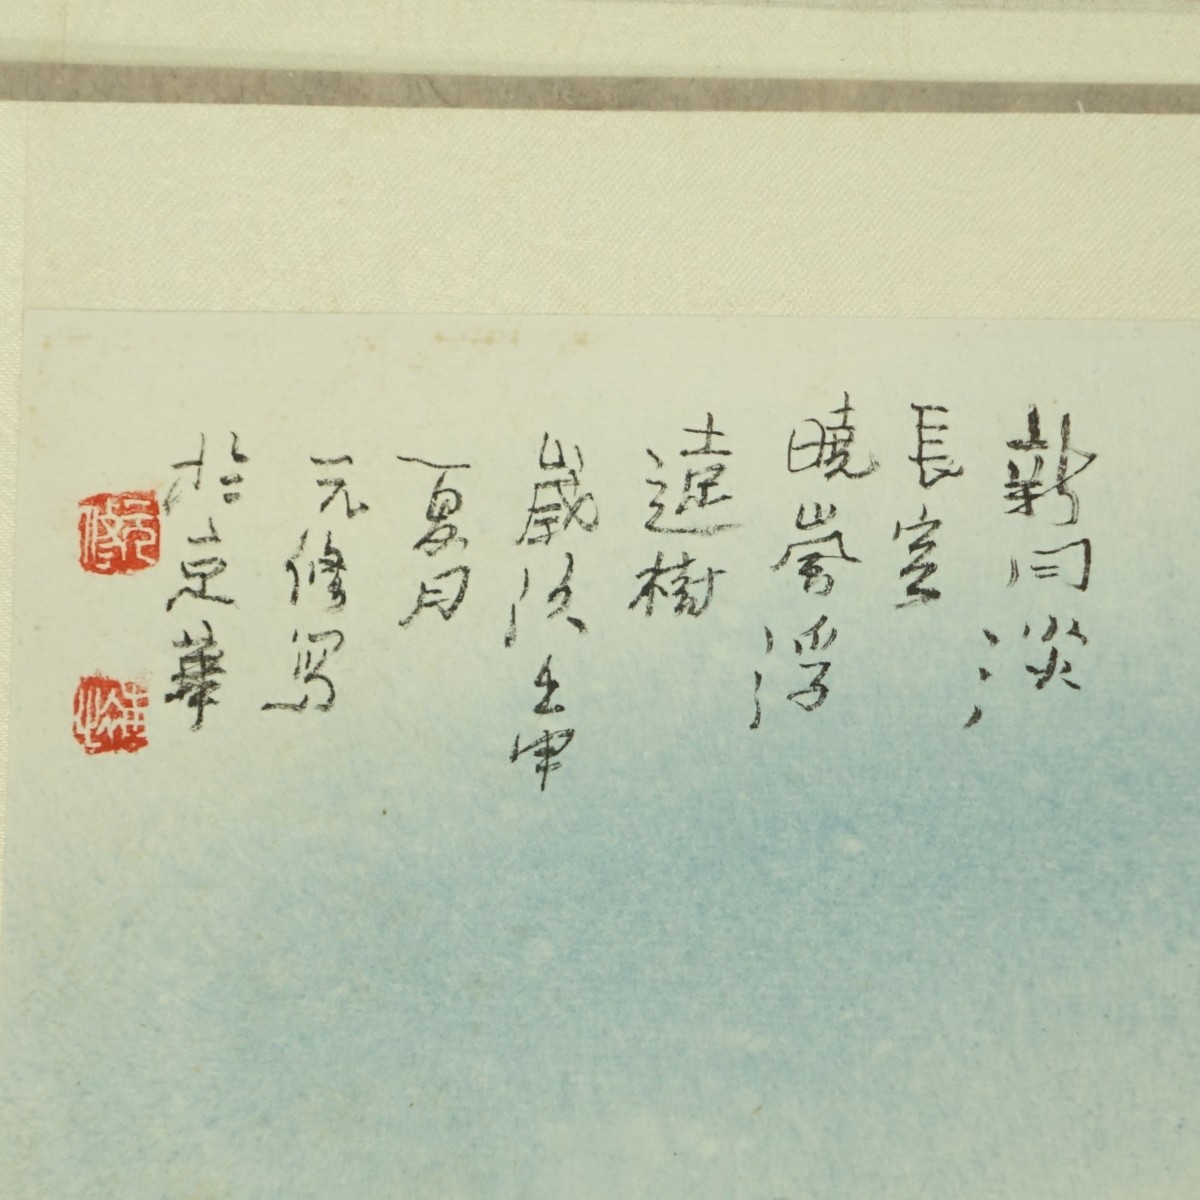 新月淡
長空
曉嵐浮
遠樹
歲次壬申
夏月
元修寫
於京華